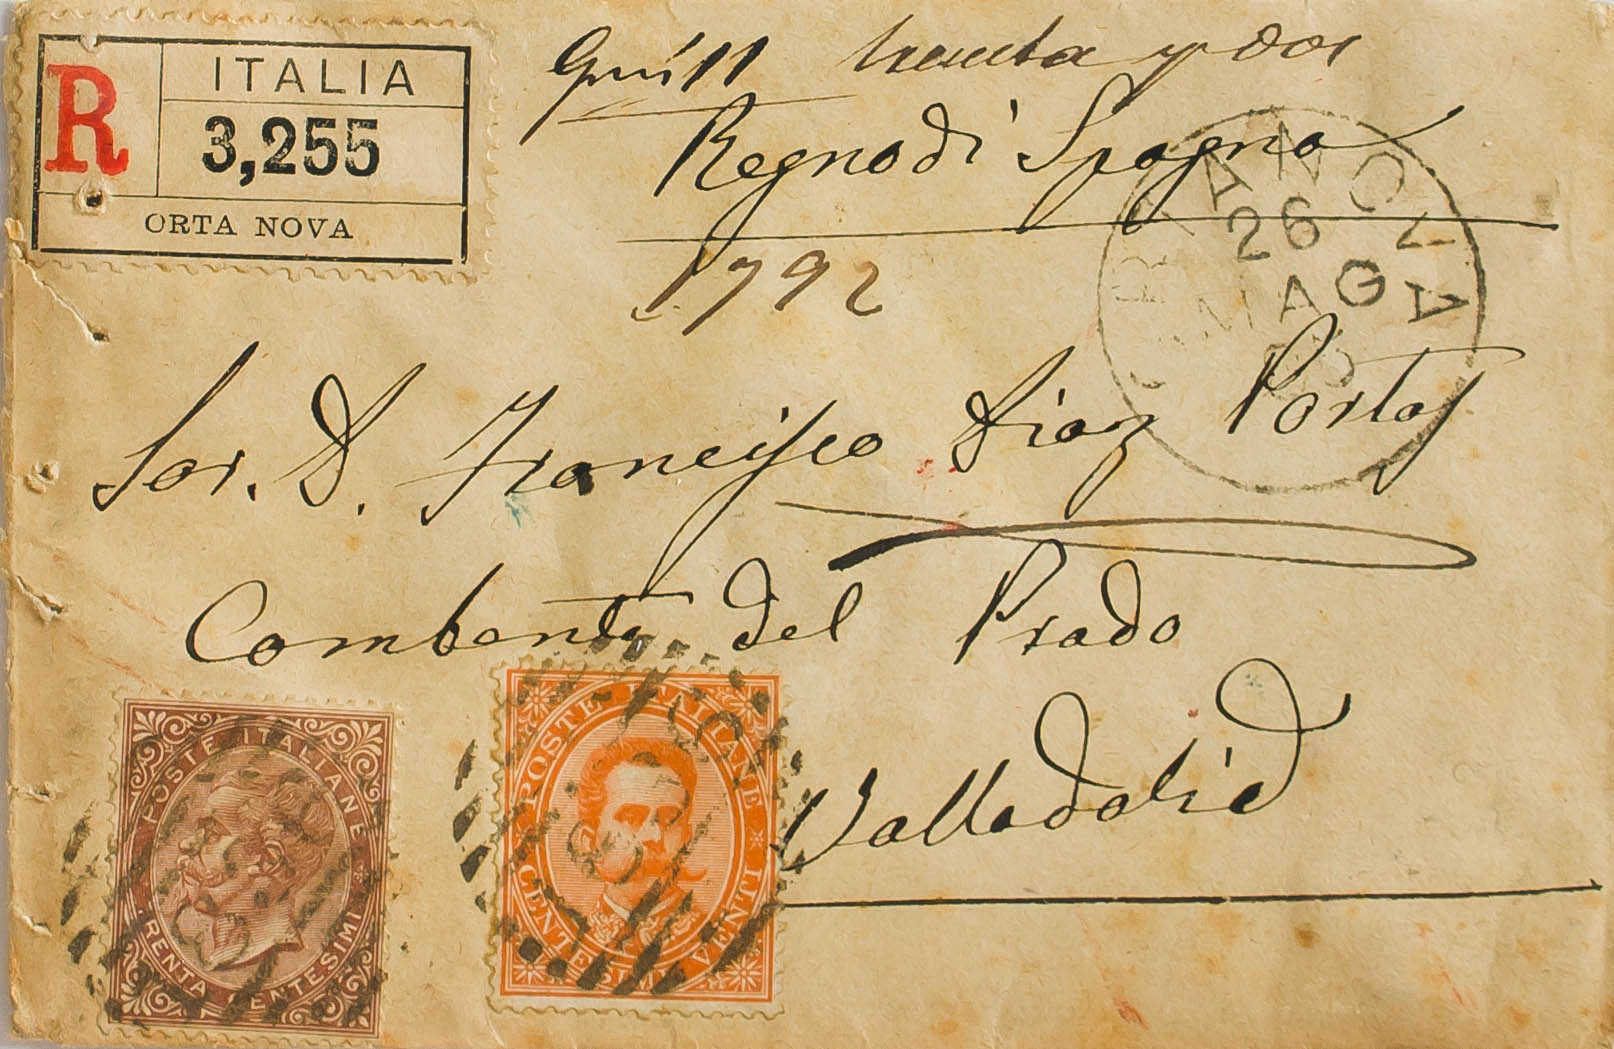 R
ITALIA
3,255
ORTA NOVA
treinta y dos
Regno di Spagna
1792
ORTANOVA
26
MAG
Sor. D. Francisco Diaz Portas
Combento del Prado
Valladolid
POSTE ITALIANE
TRENTA CENTESIMI
POSTE ITALIANE
CENTESIMI VENTI